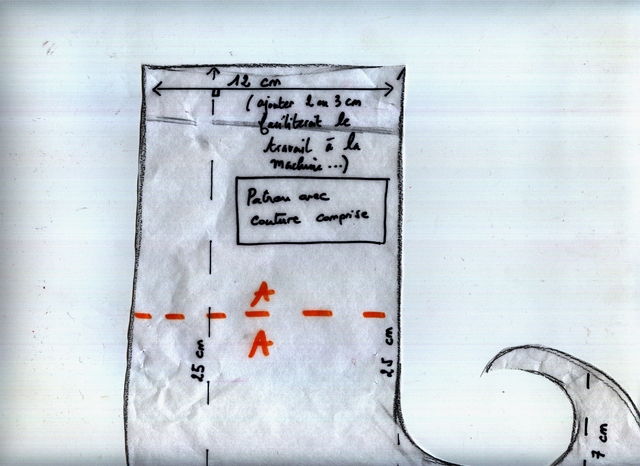 12 cm
( ajouter 2 ou 3 cm
faciliterait le
travail à la
machine...)
Patron avec
couture comprise
A
A
25 cm
25 cm
7 cm